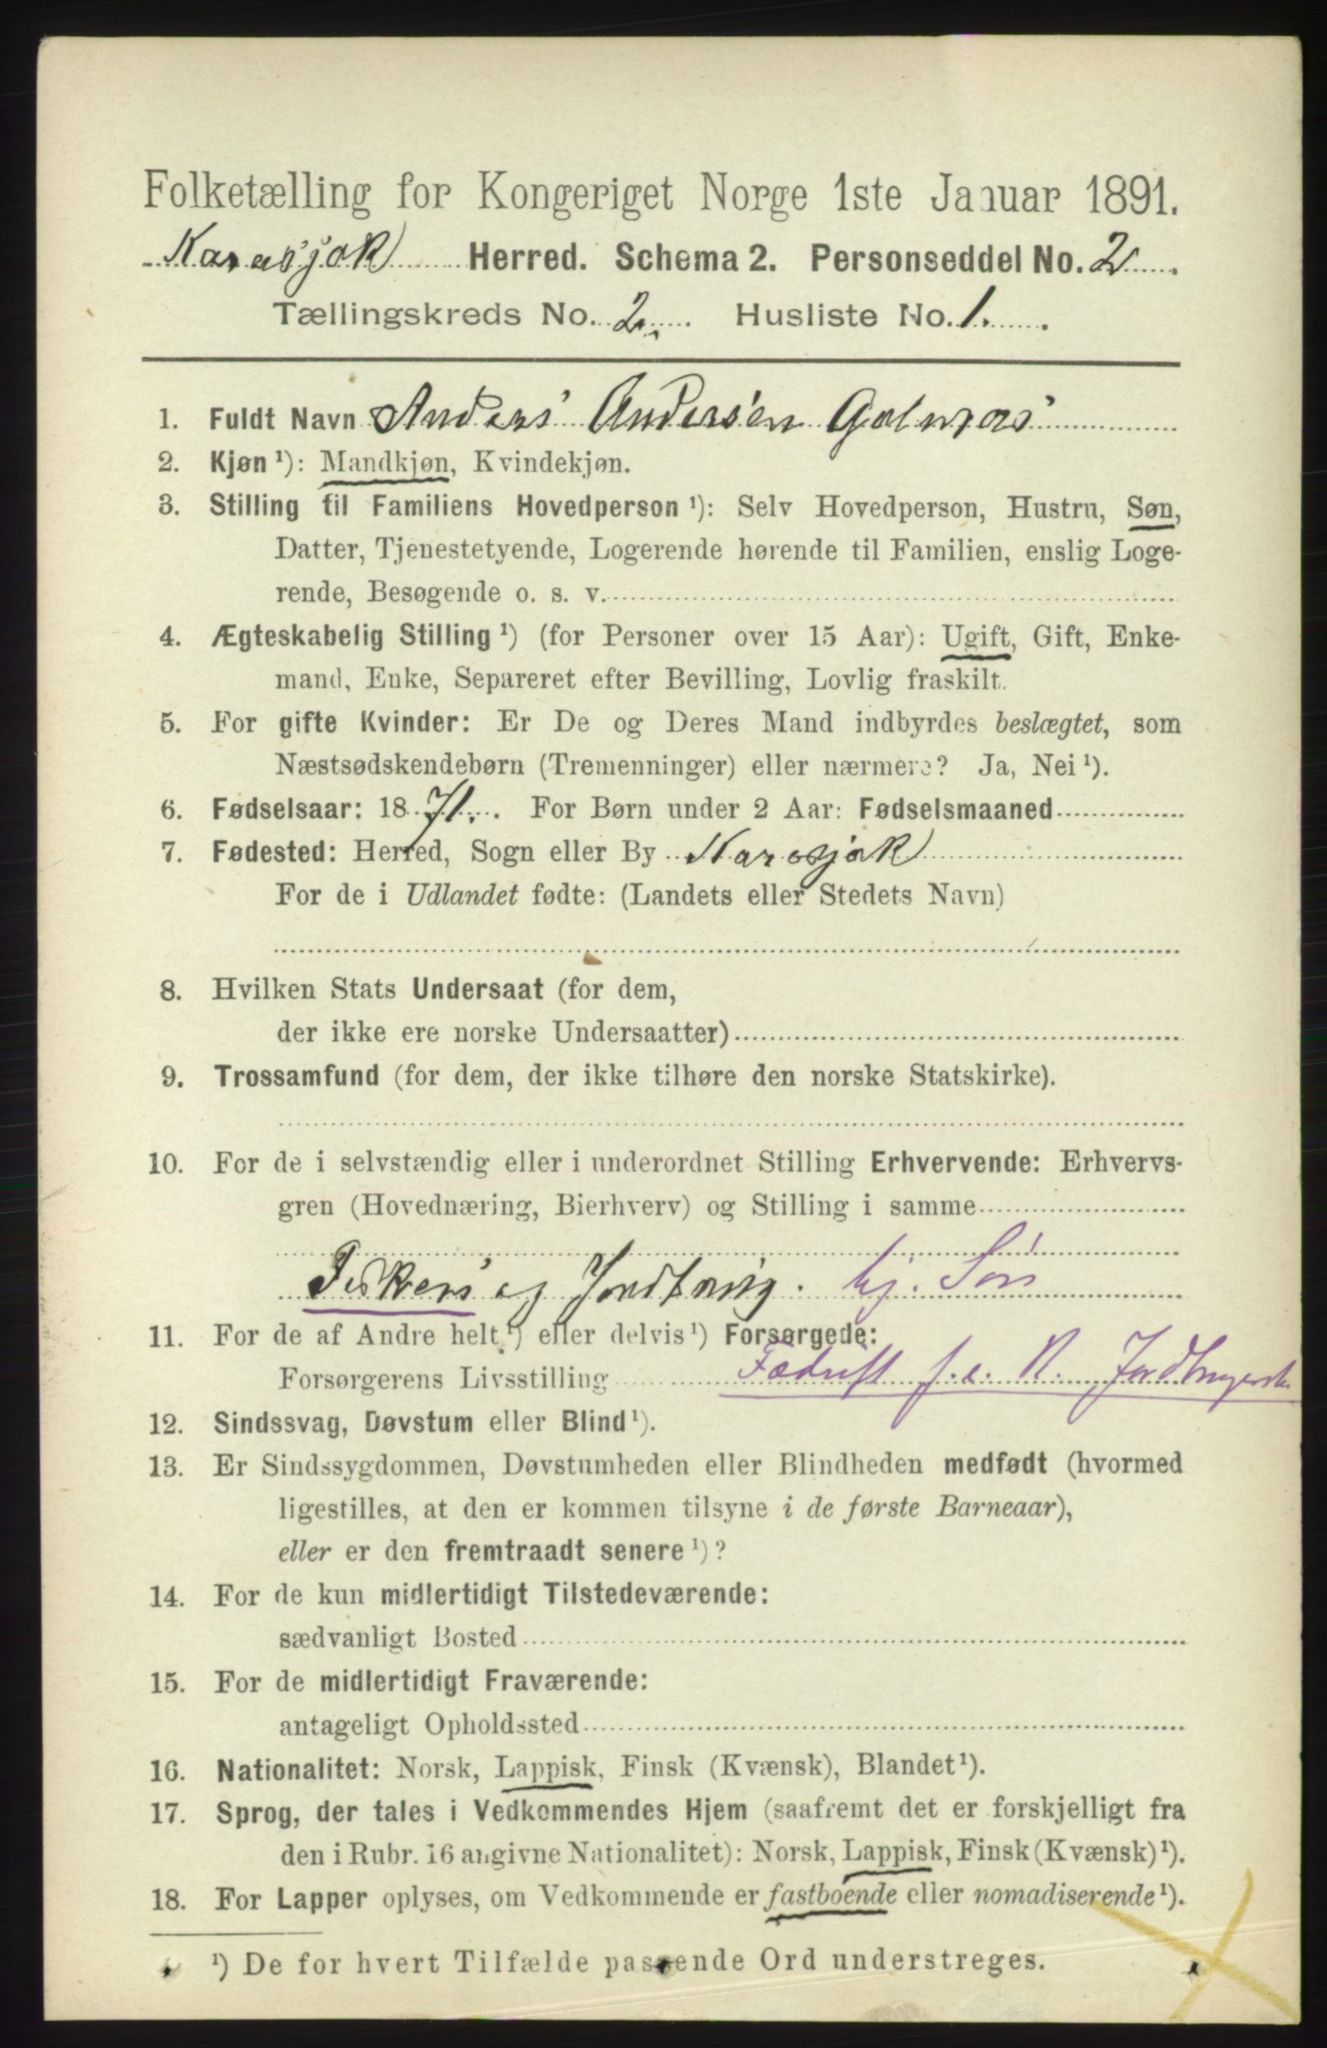 Folketælling for Kongeriget Norge 1ste Januar 1891.
Karasjok Herred. Schema 2. Personseddel No. 2
Tællingskreds No. 2. Husliste No. 1.
1. Fuldt Navn Anders Andersen Golmas
2. Kjøn ¹): Mandkjøn, Kvindekjøn.
3. Stilling til Familiens Hovedperson ¹): Selv Hovedperson, Hustru, Søn,
Datter, Tjenestetyende, Logerende hørende til Familien, enslig Loge-
rende, Besøgende o. s. v.
4. Ægteskabelig Stilling ¹) (for Personer over 15 Aar): Ugift, Gift, Enke-
mand, Enke, Separeret efter Bevilling, Lovlig fraskilt.
5. For gifte Kvinder: Er De og Deres Mand indbyrdes beslægtet, som
Næstsødskendebørn (Tremenninger) eller nærmere? Ja, Nei ¹).
6. Fødselsaar: 1871. For Børn under 2 Aar: Fødselsmaaned
7. Fødested: Herred, Sogn eller By Karasjok
For de i Udlandet fødte: (Landets eller Stedets Navn)
8. Hvilken Stats Undersaat (for dem,
der ikke ere norske Undersaatter)
9. Trossamfund (for dem, der ikke tilhøre den norske Statskirke).
10. For de i selvstændig eller i underordnet Stilling Erhvervende: Erhvervs-
gren (Hovednæring, Bierhverv) og Stilling i samme
Fiskeri og Jordbrug. hj. Søn
11. For de af Andre helt ¹) eller delvis ¹) Forsørgede:
Forsørgerens Livsstilling Fædrift f. e. R.
12. Sindssvag, Døvstum eller Blind ¹).
13. Er Sindssygdommen, Døvstumheden eller Blindheden medfødt (hvormed
ligestilles, at den er kommen tilsyne i de første Barneaar),
eller er den fremtraadt senere ¹)?
14. For de kun midlertidigt Tilstedeværende:
sædvanligt Bosted
15. For de midlertidigt Fraværende:
antageligt Opholdssted
16. Nationalitet: Norsk, Lappisk, Finsk (Kvænsk), Blandet ¹).
17. Sprog, der tales i Vedkommendes Hjem (saafremt det er forskjelligt fra
den i Rubr. 16 angivne Nationalitet): Norsk, Lappisk, Finsk (Kvænsk) ¹).
18. For Lapper oplyses, om Vedkommende er fastboende eller nomadiserende ¹).
¹) De for hvert Tilfælde passende Ord understreges.